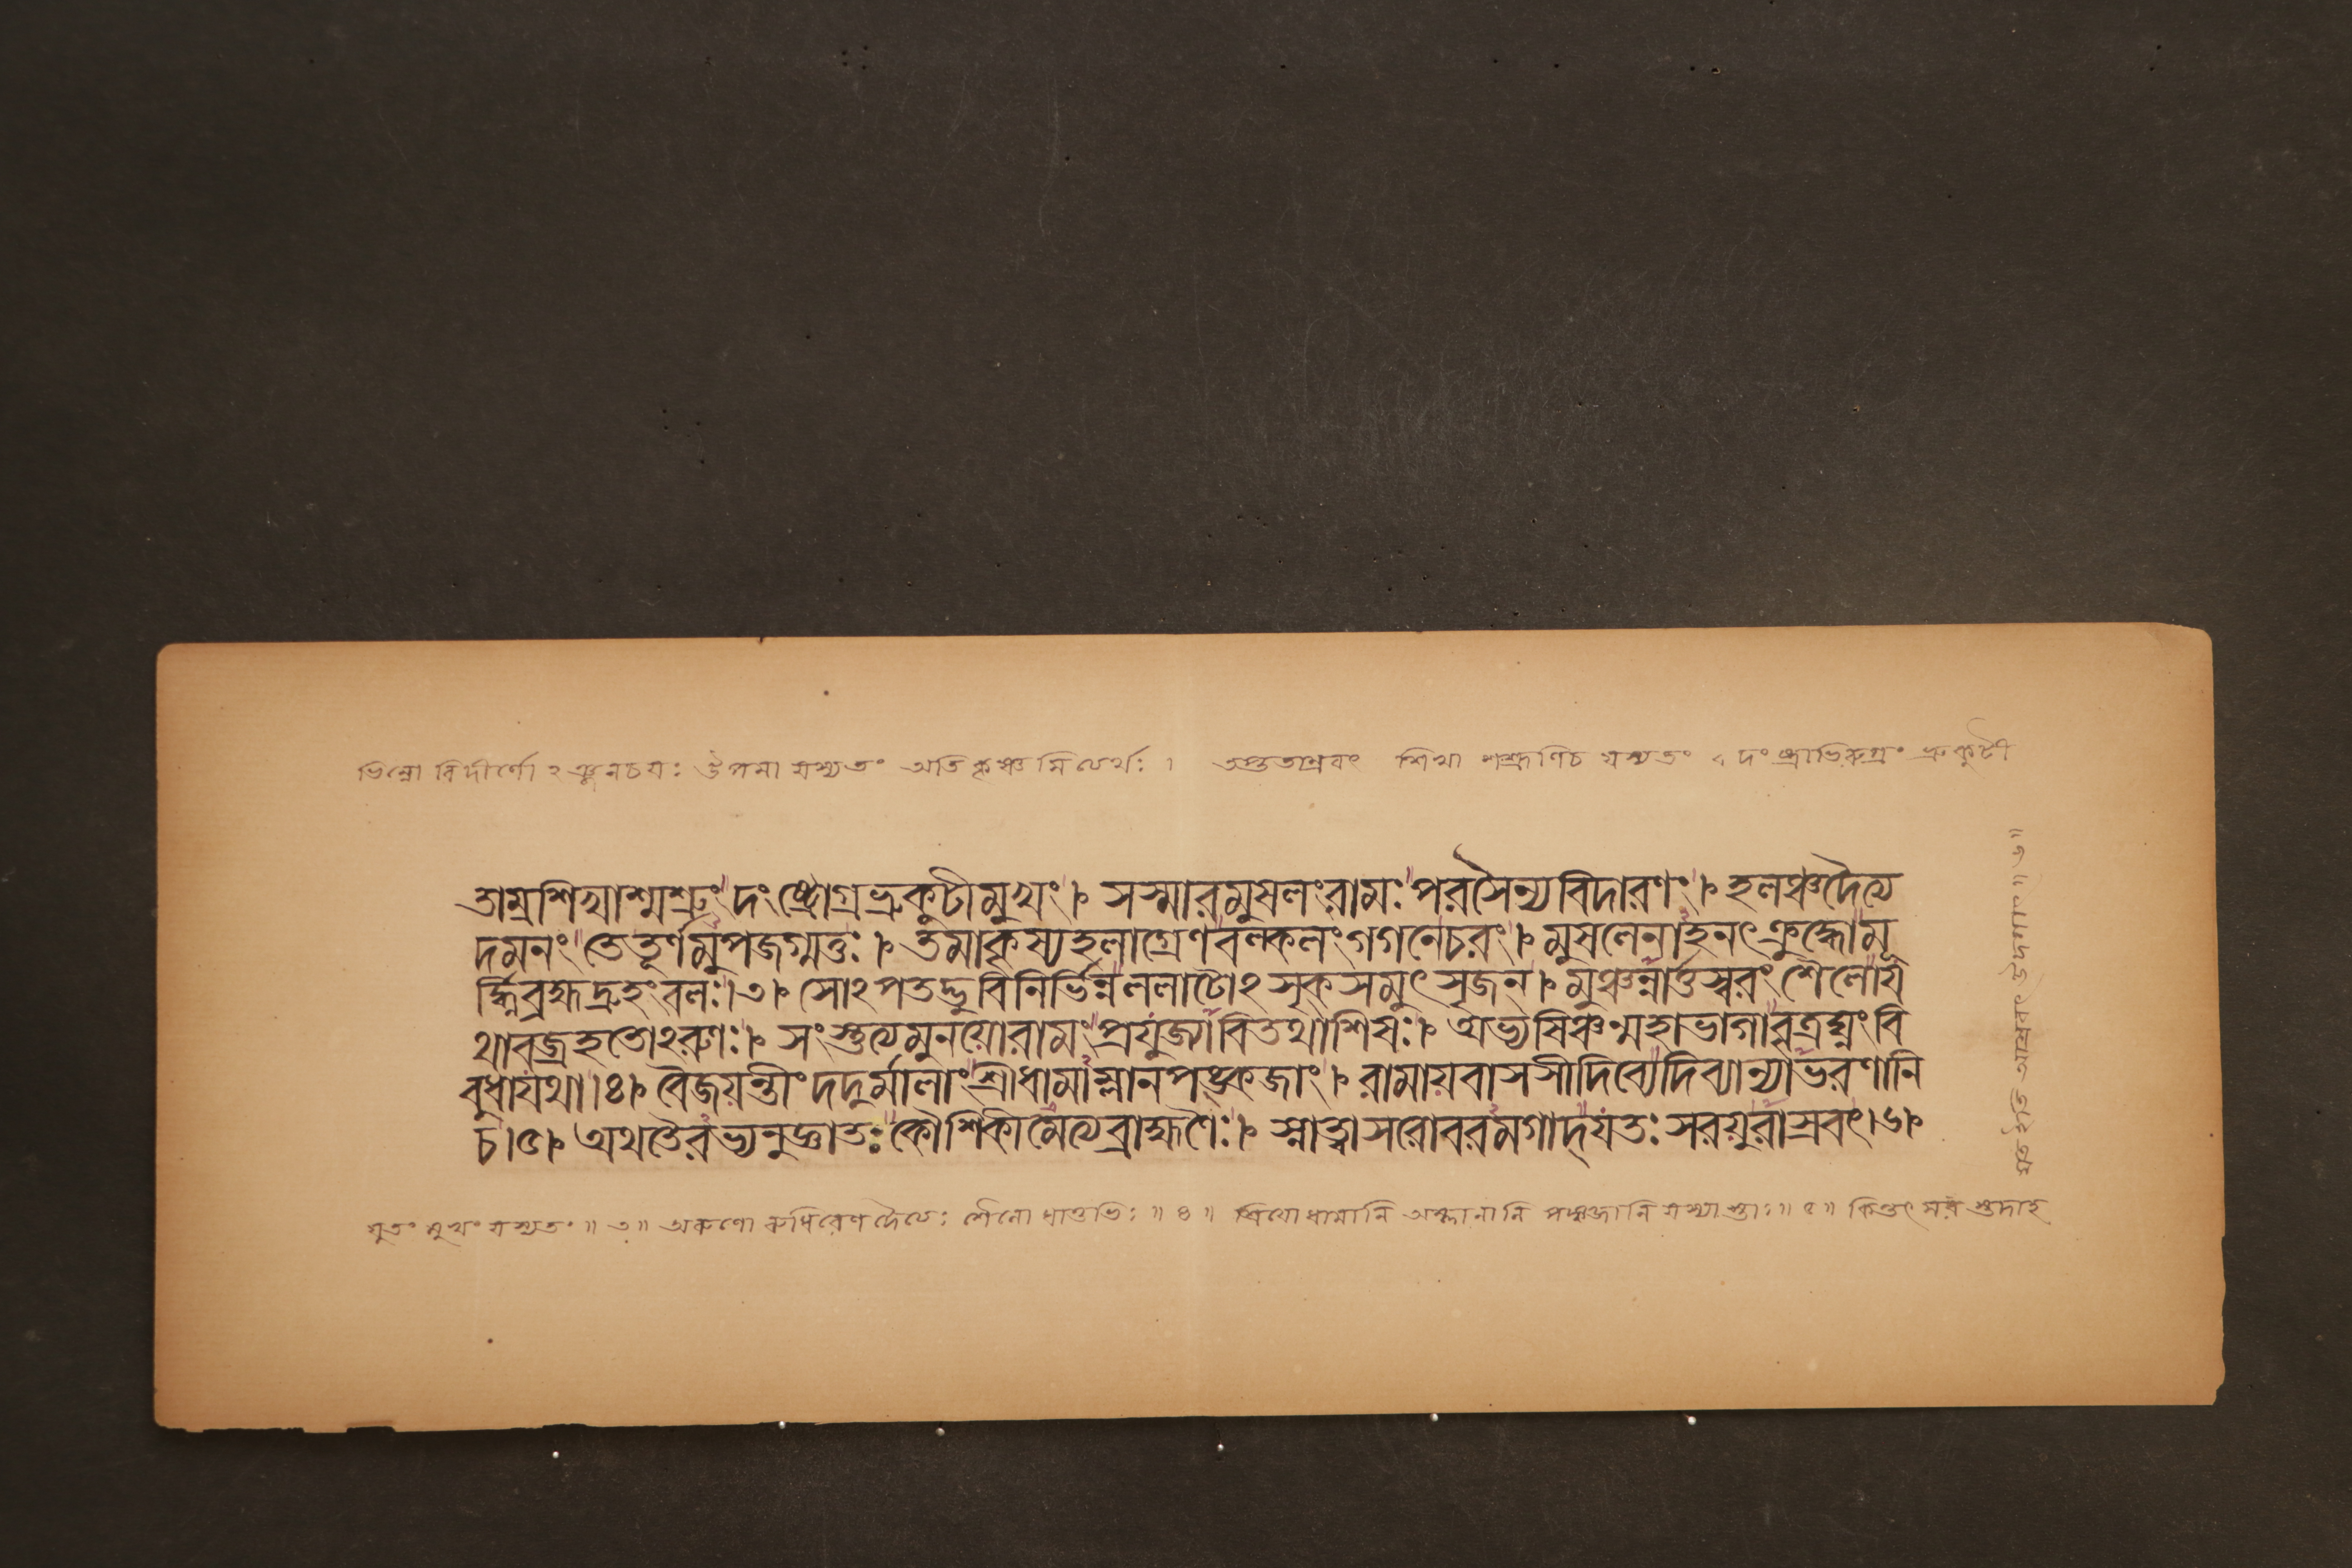 ভিন্নো বিদীর্ণো ২ঞ্জনচয়ঃ উপমা যস্যতং অতি কৃষ্ণ মিত্যর্থঃ । তপ্ততাম্রবৎ শিখা শ্মশ্রূণিচ যস্যতং । দংষ্ট্রাভিরুগ্রং ভ্রুকুটী
তাম্রশিখাশ্মশ্রুং দংষ্ট্রোগ্রভ্রুকুটীমুখং । সস্মারমুষলংরামঃ পরসৈন্যবিদারণং । হলঞ্চদৈত্য
দমনং তেতূর্ণমুপজগ্মতুঃ । তমাকৃষ্যহলাগ্রেণ বল্বলংগগনেচরং । মুষলেনাহনৎক্রুদ্ধোমূ
র্দ্ধ্নিব্রহ্মদ্রুহংবলঃ।৩। সোঽপতদ্ভুবিনির্ভিন্নললাটোঽসৃক্সমুৎসৃজন্ । মুঞ্চন্নার্ত্তস্বরং শৈলোয
থাবজ্রহতোঽরুণঃ। সংস্তুত্যমুনয়োরামং প্রযুজ্যাবিতথাশিষঃ। অভ্যষিঞ্চন্মহাভাগাবৃত্রঘ্নংবি
বুধাযথা।৪। বৈজয়ন্তীংদদুর্মালাং শ্রীধামাম্লানপঙ্কজাং। রামায়বাসসীদিব্যেদিব্যান্যাভরণানি
চ।৫। অথতৈরভ্যনুজ্ঞাতঃ কৌশিকীমেত্যব্রাহ্মণৈঃ। স্নাত্বাসরোবরমগাদ্যতঃ সরয়ূরাস্রবৎ।৬।
যুতং মুখং যস্যতং ॥ ৩ ॥ অরুণো রুধিরেণদৈত্যঃ শৈলো ধাতুভিঃ ॥ ৪ ॥ শ্রিয়োধামানি অম্লানানি পঙ্কজানি যস্যাস্তাং ॥ ৫ ॥ কিন্তৎ সর স্তদাহ
যত ইতি আস্রবৎ উদগাৎ ॥ ৬ ॥